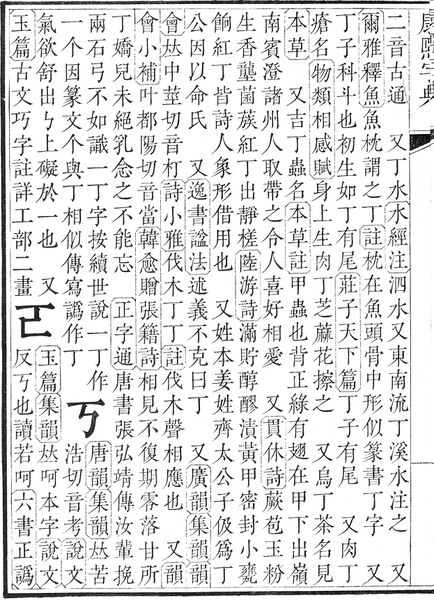 康熙字典
二音古通　又丁水水經注泗水又東南流丁溪水注之　又
爾雅釋魚魚枕謂之丁註枕在魚頭骨中形似篆書丁字　又
丁子科斗也初生如丁有尾莊子天下篇丁子有尾　又肉丁
瘡名物類相感賦身上生肉丁芝蔴花擦之　又烏丁茶名見
本草　又吉丁蟲名本草註甲蟲也背正綠有翅在甲下出嶺
南賓澄諸州人取帶之令人喜好相愛　又貫休詩蕨苞玉粉
生香壟菌蔟紅丁出靜槎陸游詩滿貯醇醪漬黃甲密封小甕
餉紅丁皆詩人象形借用也　又姓本姜姓齊太公子伋爲丁
公因以命氏　又逸書諡法述義不克曰丁　又廣韻集韻韻
會𠀤中莖切音朾詩小雅伐木丁丁註伐木聲相應也　又韻
會小補叶都陽切音當韓愈贈張籍詩相見不復期零落甘所
丁嬌兒未絕乳念之不能忘　正字通唐書張弘靖傳汝輩挽
兩石弓不如識一丁字按續世說一丁作
一个因篆文个與丁相似傳寫譌作丁
丂
唐韻集韻𠀤苦
浩切音考說文
氣欲舒出ㄅ上礙於一也　又
玉篇古文巧字註詳工部二畫
𠀀
玉篇集韻𠀤呵本字說文
反丂也讀若呵六書正譌